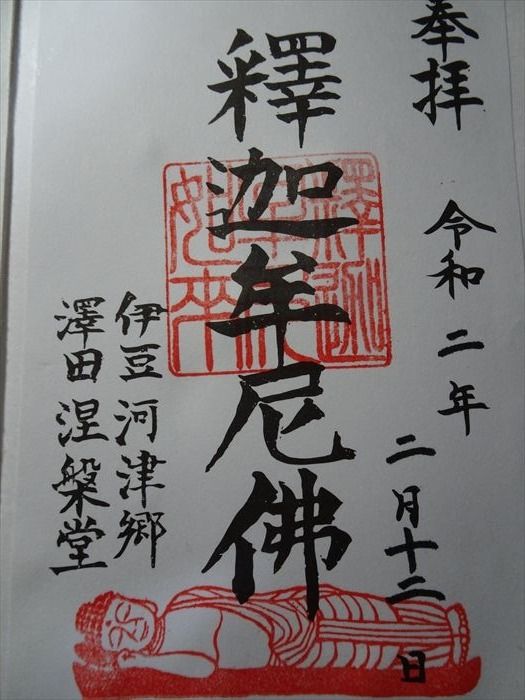 奉拝
令和二年
二月十二日
釋迦牟尼佛
伊豆河津郷
澤田涅槃堂